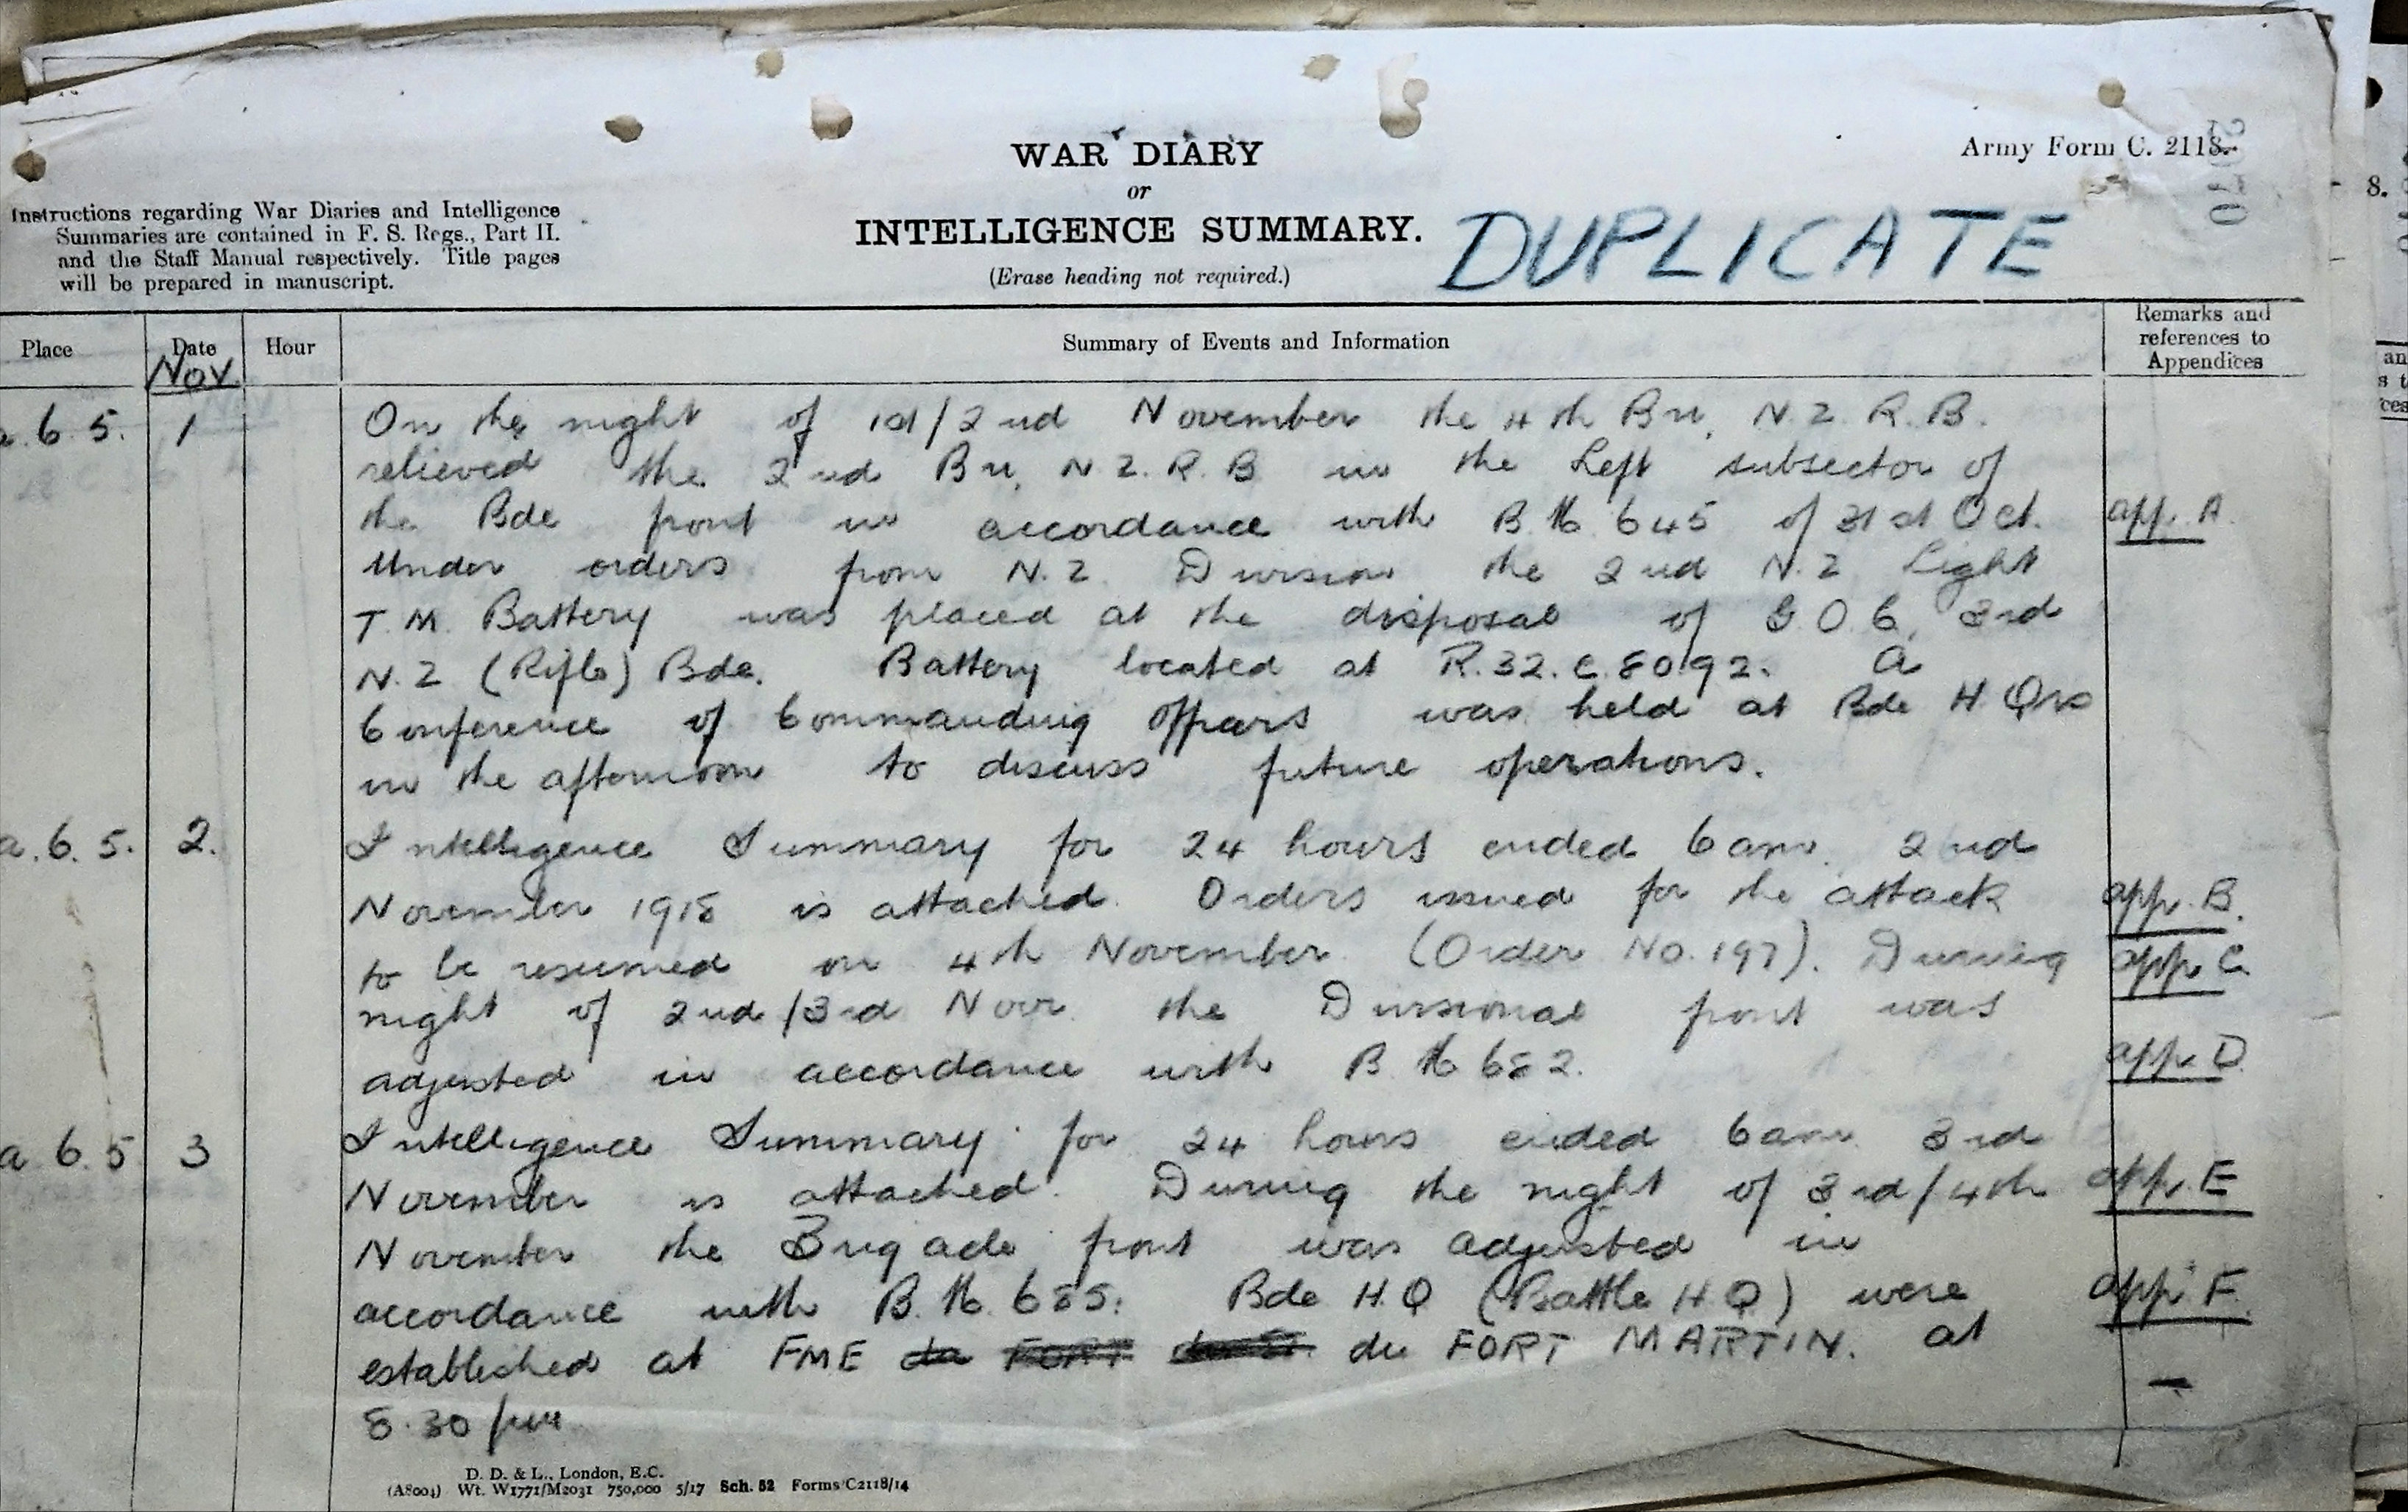 WAR DIARY
or
INTELLIGENCE SUMMARY.
(Erase heading not required.)
DUPLICATE
Army Form C. 2118.
Instructions regarding War Diaries and Intelligence
Summaries are contained in F. S. Regs., Part II.
and the Staff Manual respectively. Title pages
will be prepared in manuscript.
Place Date Hour Summary of Events and Information Remarks and references to Appendices
Nov
a. 6 5. 1 On the night of 1st/2nd November the 4th Bn, N.Z.R.B.
relieved the 2nd Bn, N.Z.R.B in the Left subsector of
the Bde front in accordance with B.M 645 of 31st Oct. app. A.
Under orders from N.Z. Division the 2nd N.Z Light
T.M. Battery was placed at the disposal of G.O.C, 3rd
N.Z (Rifle) Bde. Battery located at R.32.c.80.92. A
Conference of Commanding Officers was held at Bde H Qrs
in the afternoon to discuss future operations.
a. 6. 5. 2. Intelligence Summary for 24 hours ended 6am. 2nd
November 1918 is attached. Orders issued for the attack app. B.
to be resumed on 4th November (Order No. 197). During app. C.
night of 2nd/3rd Novr. the Divisional front was
adjusted in accordance with B.M 682. app. D.
a 6. 5 3 Intelligence Summary for 24 hours ended 6am 3rd
November is attached. During the night of 3rd/4th app. E
November the Brigade front was adjusted in
accordance with B.M. 685. Bde H.Q (Battle H.Q) were app. F.
established at FME du FORT MARTIN. at
8.30 pm
D. D. & L., London, E.C.
(A8004) Wt. W1771/M2031 750,000 5/17 Sch. 52 Forms/C2118/14